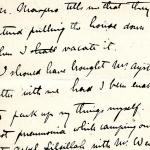 r. Morgens tell us that they
tend pulling the house down
hen I shall vacate it.
I should have brought Mrs Ayst
etter with me had I been enab
pack up my things myself.
t pneumonia while camping ou
with Mr. We